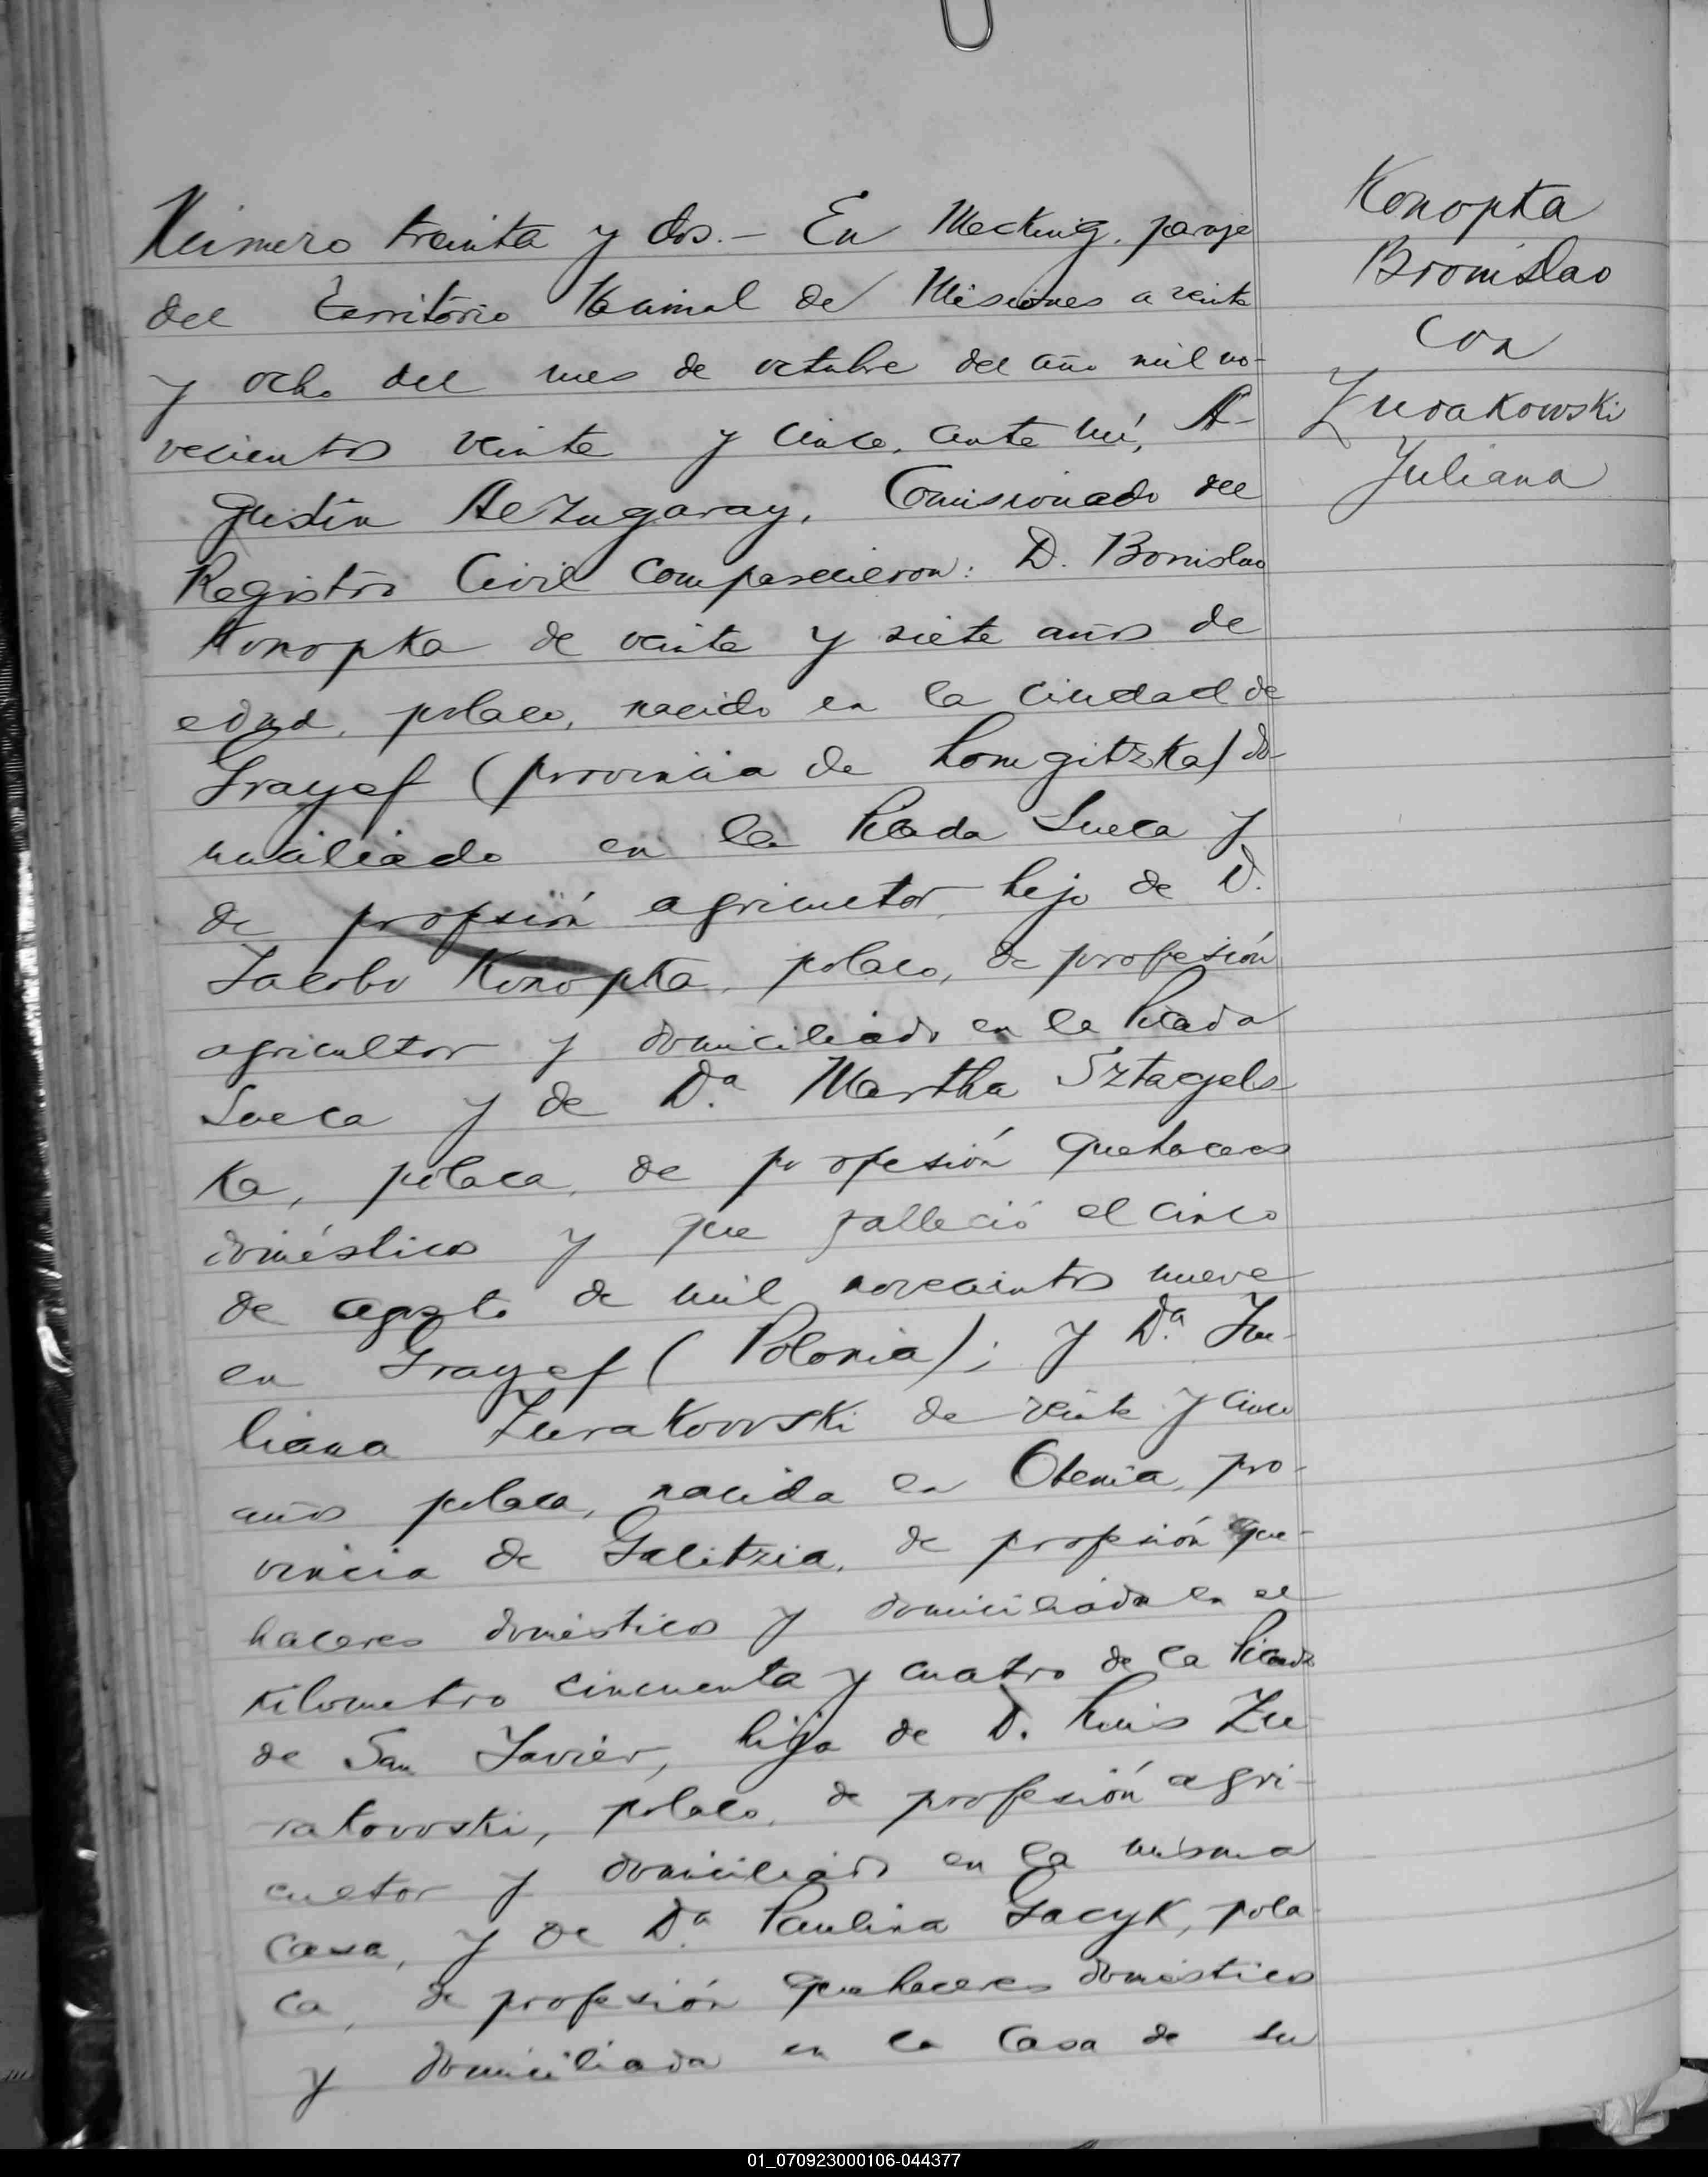 Número treinta y dos.- En Mecking, paraje
del Territorio Nacional de Misiones a veinte
y ocho del mes de octubre del año mil no-
vecientos veinte y cinco, ante mí, A-
gustín Aezugaray, Comisionado del
Registro Civil comparecieron: D. Bronislao
Konopka de veinte y siete años de
edad, polaco, nacido en la ciudad de
Grayef (provincia de Lomgitzka) do-
miciliado en la Picada Sueca y
de profsión agricultor, hijo de D.
Jacobo Konopka, polaco, de profesión
agricultor y domiciliado en la Picada
Sueca y de D.ª Martha Sztagels
ka, polaca, de profesión quehaceres
domésticos y que falleció el cinco
de agosto de mil novecientos nueve
en Grayef (Polonia); y D.ª Ju-
liana Zurakowski de veinte y cinco
años polaca, nacida en Otenia, pro-
vincia de Galitzia, de profesión que-
haceres domésticos y domiciliada en el
kilometro cincuenta y cuatro de la Picada
de San Javier, hija de D. Luis Zu-
rakowski, polaco, de profesión agri-
cultor y domiciliado en la misma
casa, y de D.ª Paulina Gacyk, pola
ca, de profesión quehaceres domésticos
y domiciliada en la casa de su
Konopka
Bronislao
con
Zurakowski
Juliana
01_070923000106-044377